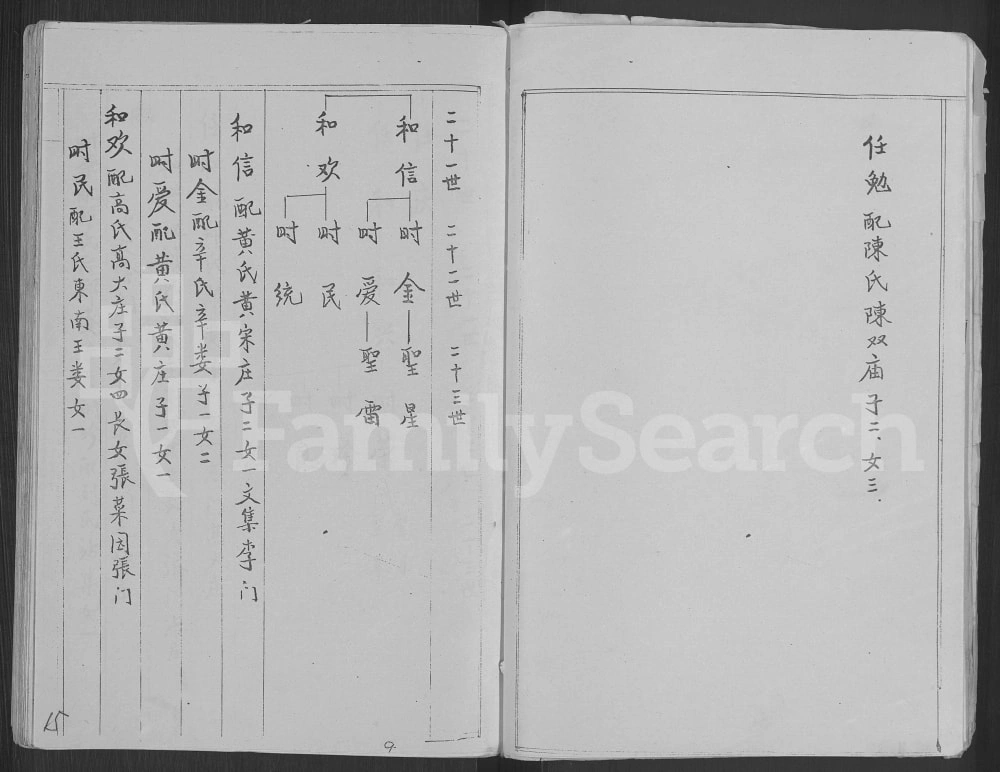 任勉 配陳氏陳双庙子二、女三.
二十一世 二十二世 二十三世
和信 时金—聖星
时爱—聖雷
和欢 时民
时统
和信 配黄氏黄宋庄子二女一文集李门
时金配辛氏辛娄子一女二
时爱配黄氏黄庄子一女一
和欢配高氏高大庄子二女四长女張菜园張门
时民配王氏東南王娄女一
15
9.
FamilySearch